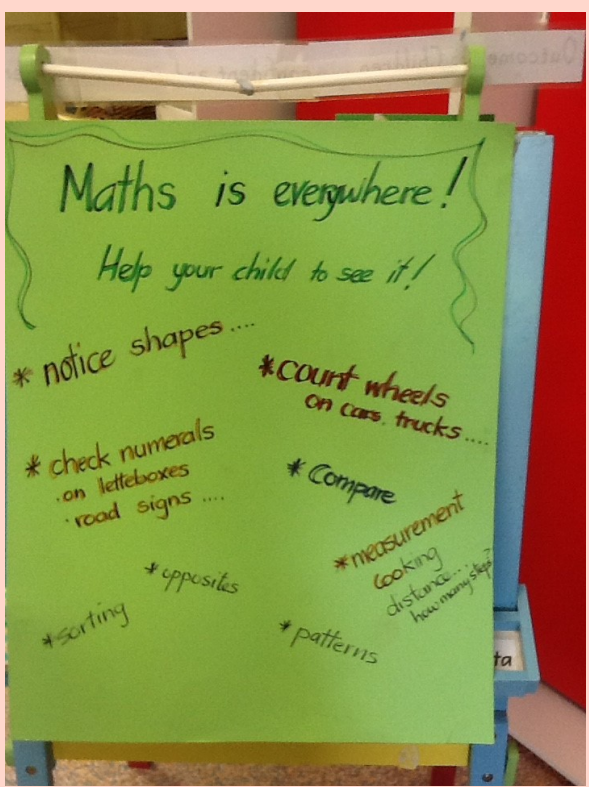 Maths is everywhere!
Help your child to see it!
* notice shapes ....
* count wheels
on cars, trucks ....
* check numerals
· on letteboxes
· road signs ....
* Compare
* measurement
cooking
distance...
how many steps?
* opposites
* sorting
* patterns
ta